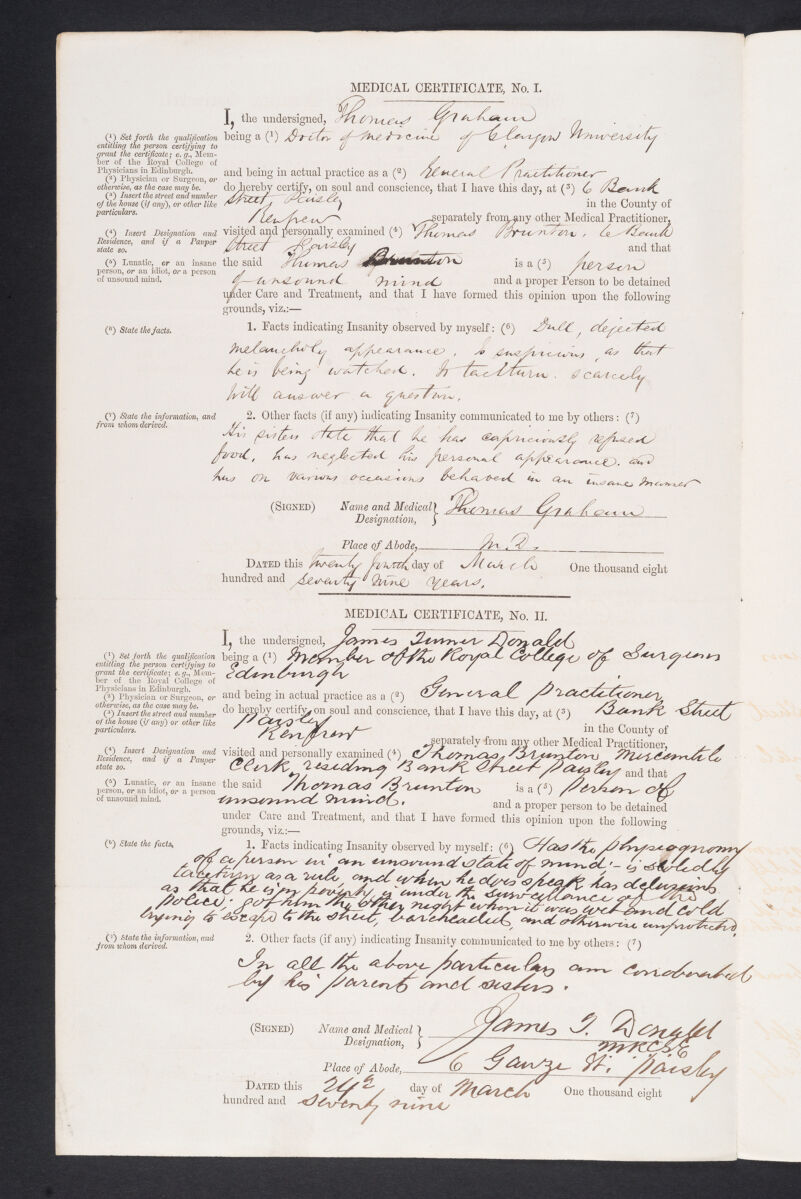 MEDICAL CERTIFICATE, No. I.
I, the undersigned, Thomas Graham
(1) Set forth the qualification entitling the person certifying to grant the certificate; e. g., Member of the Royal College of Physicians in Edinburgh.
being a (1) Doctor of medicine of Glasgow University
(2) Physician or Surgeon, or otherwise, as the case may be.
and being in actual practice as a (2) General Practitioner
(3) Insert the street and number of the house (if any), or other like particulars.
do hereby certify, on soul and conscience, that I have this day, at (3) 6 Bank
Street Paisley in the County of
Renfrew separately from any other Medical Practitioner,
(4) Insert Designation and Residence, and if a Pauper state so.
visited and personally examined (4) Thomas Brunton. 6 Bank
Street Paisley and that
(5) Lunatic, or an insane person, or an idiot, or a person of unsound mind.
the said Thomas Brunton is a (5) person
of unsound mind and a proper Person to be detained
under Care and Treatment, and that I have formed this opinion upon the following
grounds, viz.:—
(6) State the facts.
1. Facts indicating Insanity observed by myself: (6) Dull, dejected
melancholy appearance. Is suspicious, as that
he is being watched. Is taciturn. scarcely
will answer a question.
(7) State the information, and from whom derived.
2. Other facts (if any) indicating Insanity communicated to me by others: (7)
His sisters state that he has capriciously refused
food, has neglected his personal appearance. and
has on various occasions behaved in an insane manner
(SIGNED) Name and Medical Designation, Thomas Graham
Place of Abode, M.D.
DATED this twenty fourth day of March One thousand eight
hundred and seventy nine years.
MEDICAL CERTIFICATE, No. II.
I, the undersigned, James Turner Donald
(1) Set forth the qualification entitling the person certifying to grant the certificate; e. g., Member of the Royal College of Physicians in Edinburgh.
being a (1) Member of the Royal College of Surgeons
Edinburgh
(2) Physician or Surgeon, or otherwise, as the case may be.
and being in actual practice as a (2) General practitioner
(3) Insert the street and number of the house (if any) or other like particulars.
do hereby certify, on soul and conscience, that I have this day, at (3) Bank Street
Paisley in the County of
Renfrew separately from any other Medical Practitioner,
(4) Insert Designation and Residence, and if a Pauper state so.
visited and personally examined (4) Thomas Brunton Mercantile
Clerk, residing Bank Street Paisley and that
(5) Lunatic, or an insane person, or an idiot, or a person of unsound mind.
the said Thomas Brunton is a (5) Person of
unsound mind. and a proper person to be detained
under Care and Treatment, and that I have formed this opinion upon the following
grounds, viz.:—
(6) State the facts,
1. Facts indicating Insanity observed by myself: (6) Has the physiognomy
of a person in an unsound state of mind - is stolidly
taciturn as a rule, and when he does speak, has delusions
as that he is in poverty, is under the surveillance of the
Police; got him the other night when it was wet and cold
trying to escape to the street, bareheaded, and otherwise unprotected.
(7) State the information, and from whom derived.
2. Other facts (if any) indicating Insanity communicated to me by others: (7)
In all the above particulars am corroborated
by his parents and sisters.
(SIGNED) Name and Medical Designation, James T. Donald
MRCSE
Place of Abode, 6 Gauze St. Paisley
DATED this 24th day of March One thousand eight
hundred and seventy nine